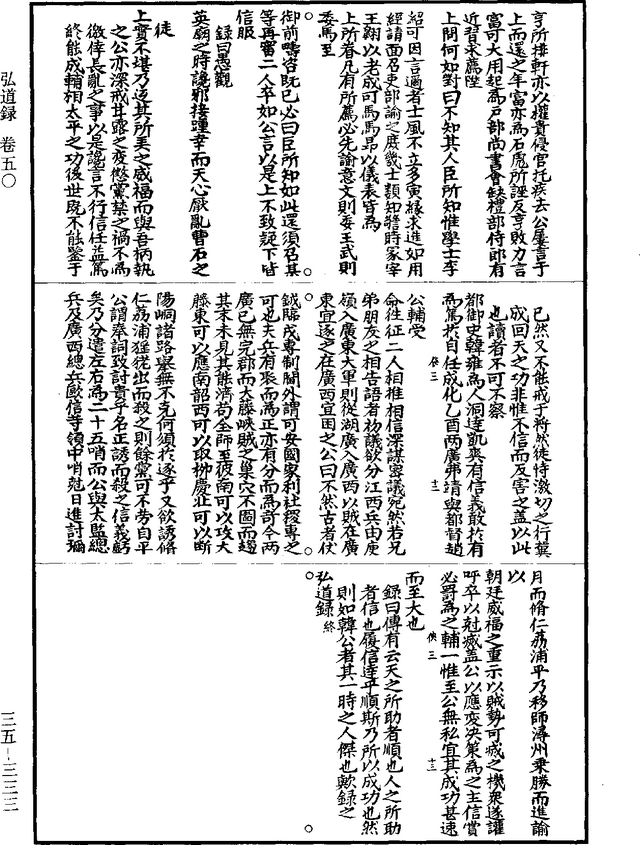 弘道録 卷五〇
三五-三三三
亨所排軒亦以權貴侵官托疾去公屢言于
上而還之年富亦為石彪所誣反亨敗力言
富可大用起為戸部尚書會缺禮部侍郎有
近習求薦陞
上問何如對曰不知其人臣所知惟學士李
紹可因言邇者士風不立多寅緣求進如用
經請面召吏部諭之庶幾士類知警時冢宰
王翱以老成可馬馬昂以儀表皆為
上所眷凡有所薦必先諭意文則委王武則
委馬至
御前疇咨既已必曰臣所知如此還須召某
等再審二人卒如公言以是上不致疑下皆
信服
録曰愚觀
英廟之時讒邪接踵幸而天心厭亂曹石之
徒
上實不堪乃返其所美之威福而與吾柄執
之公亦深戒甘露之変懲黨禁之禍不為
徼倖長亂之事以是讒言不行信任益篤
終能成輔相太平之功後世既不能鑒于
已然又不能戒于將然徒恃激切之行冀
成回天之功非惟不信而反害之蓋以此
也讀者不可不察
都御史韓雍為人洞達凱爽有信義敢於有
為篤於自任成化乙酉兩廣弗靖與都督趙
公輔受
命徃征二人相推相信深謀密議宛然若兄
弟朋友之相告語者初議欲分江西兵由庾
嶺入廣東大軍則從湖廣入廣西以賊在廣
東宜逐之在廣西宜困之公曰不然古者仗
鉞臨戎專制閫外謂可安國家利社稷專之
可也夫兵有聚而為正亦有分而為奇今兩
廣已無完郡而大藤峽賊之巢穴不圖而趨
其末未見其能濟苟全師至彼南可以攻大
藤東可以應南韶西可以取柳慶北可以斷
陽峒諸路舉無不克何須於逐乎又欲誘脩
仁荔浦猺獞出而殺之則餘黨可不勞自平
公謂奉詞致討貴乎名正誘而殺之信義虧
矣乃分遣左右為二十五哨而公與太監總
兵及廣西總兵歐信等領中哨尅日進討彌
月而脩仁荔浦平乃移師潯州乘勝而進諭
以
朝廷威福之重示以賊勢可滅之機衆遂讙
呼卒以剋滅蓋公以應変决策為之主信賞
必罰為之輔一惟至公無私宜其成功甚速
而至大也
録曰傳有云天之所助者順也人之所助
者信也履信達乎順斯乃所以成功也然
則如韓公者其一時之人傑也歟録之
弘道録終